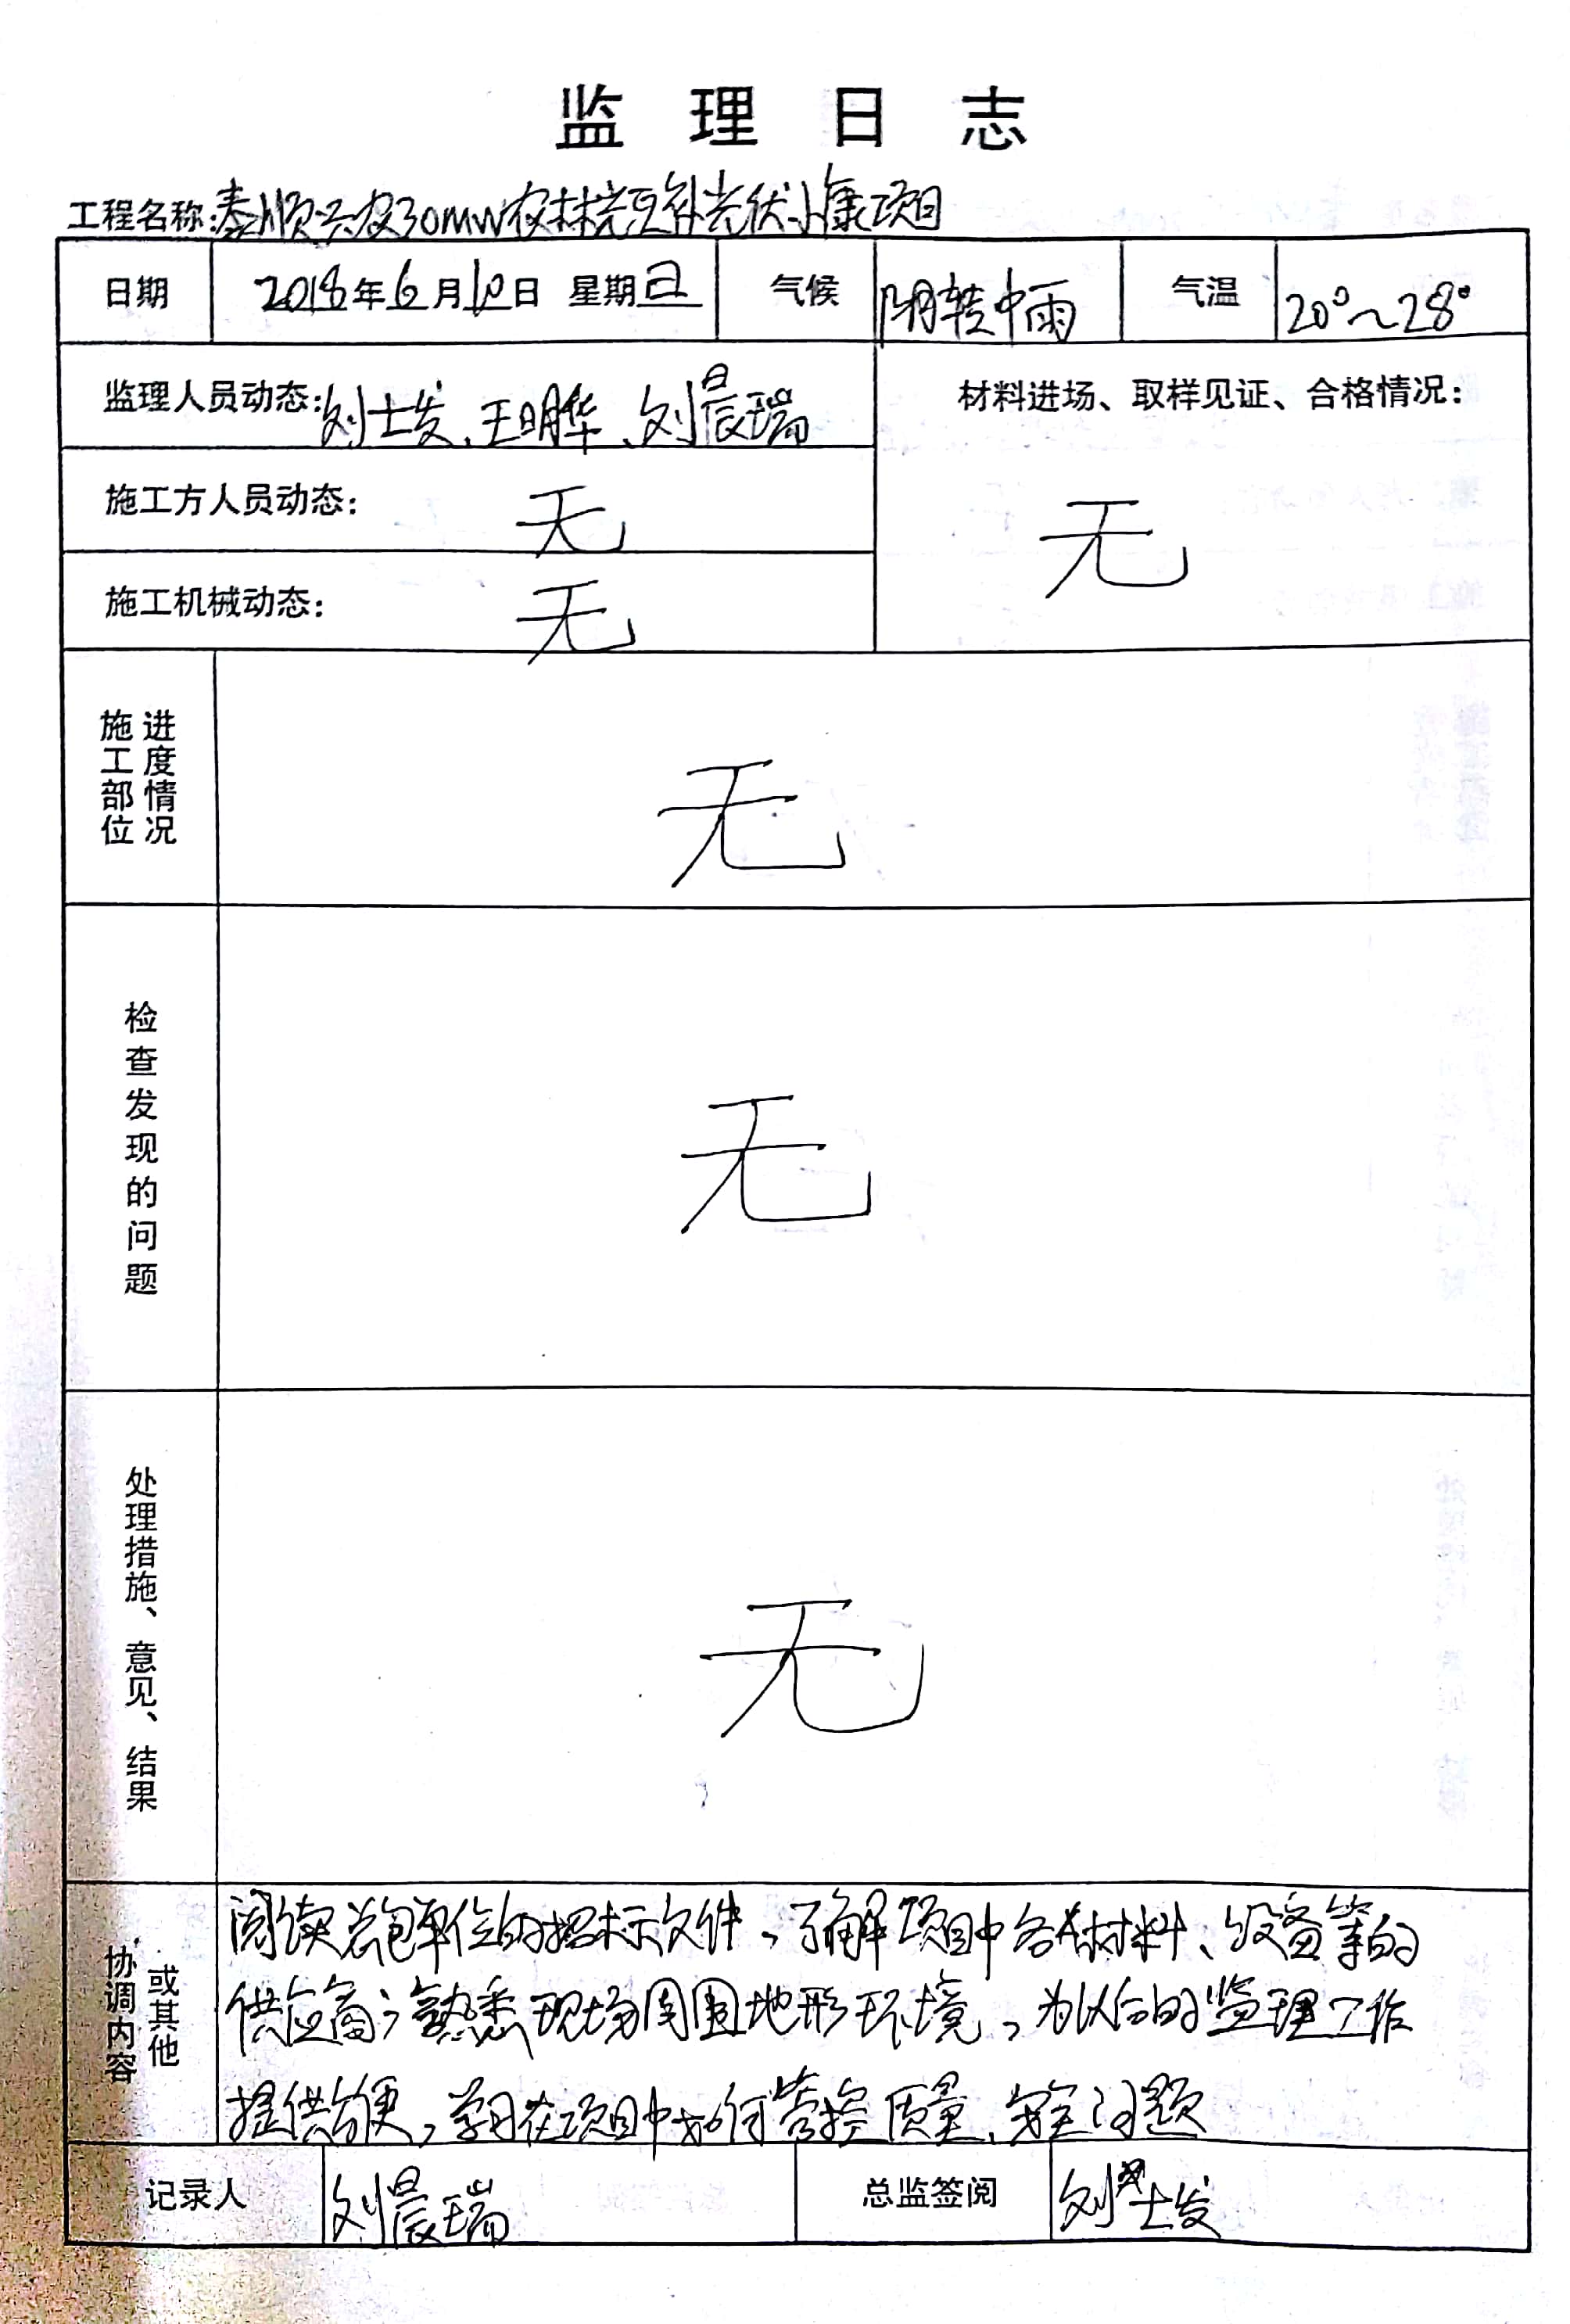 监理日志
工程名称:泰顺兴农30MW农林光互补光伏小康项目
日期 2018年6月10日 星期日 气候 阴转中雨 气温 20°~28°
监理人员动态:刘士发、王明华、刘晨瑞 材料进场、取样见证、合格情况:
施工方人员动态: 无 无
施工机械动态: 无
施工部位 进度情况 无
检查发现的问题 无
处理措施、意见、结果 无
协调内容 或其他
阅读总包单位的招标文件,了解项目中各材料、设备等的
供应商;熟悉现场周围地形环境,为以后的监理工作
提供方便,学习在项目中如何管控质量、安全问题
记录人 刘晨瑞 总监签阅 刘士发